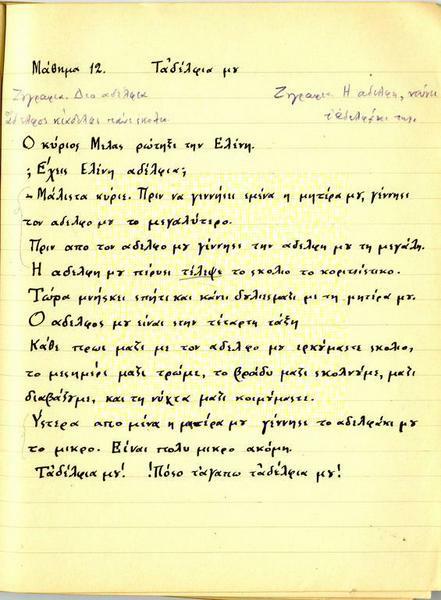 Μάθημα 12. Τἀδέλφια μυ
Ζυγραφια. Διο αδελφια
Ζυγραφια. Η αδελφη, κυνι
τ᾽αδελφακι της.
Ο κύριος Μιλας ρώτηξι την Ελένη.
; Εχεις Ελένη αδέλφια;
- Μάλιστα κύριε. Πριν να γιννήσει εμένα η μητέρα μυ, γέννησε
τον αδελφο μυ το μεγαλύτερο.
Πριν απο τον αδελφο μυ γέννησε την αδελφη μυ τη μεγάλη.
Η αδελφη μυ πέρυσι τέλιψε το σκολιο το κοριτσίστικο.
Τώρα μνήσκει σπήτι και κάνι δυλιεςμαζι με τη μητέρα μυ.
Ο αδελφος μυ είναι στην τέταρτη τάξη
Κάθε πρωι μαζι με τον αδελφο μυ ερκύμαστε σκολιο,
το μεσημέρι μαζι τρώμε, το βράδυ μαζι σκολνύμε, μαζι
διαβάζυμε, και τη νύχτα μαζι κοιμύμαστε.
Υςτερα απο μένα η μητέρα μυ γέννησε το αδελφάκι μυ
το μικρο. Είναι πολυ μικρο ακόμη.
Τἀδέλφια μυ! !Πόσο τἀγαπω τἀδέλφια μυ!